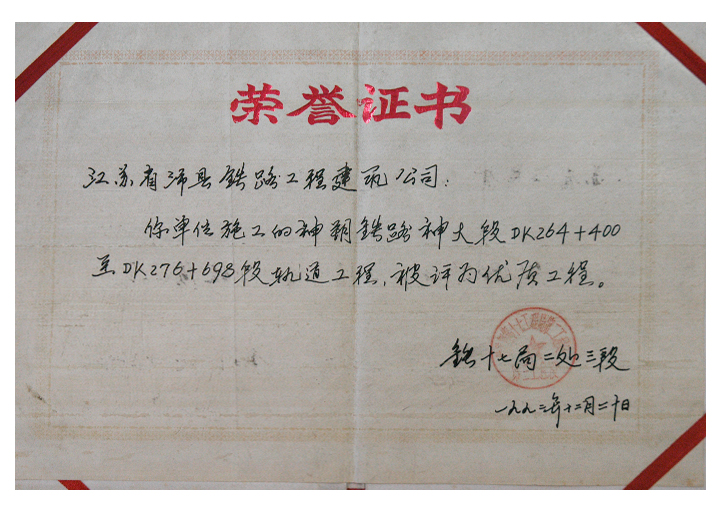 荣誉证书
江苏省沛县铁路工程建筑公司：
你单位施工的神朔铁路神大段DK264+400
至DK276+698段轨道工程，被评为优质工程。
铁十七局二处三段
一九九二年十二月二十日